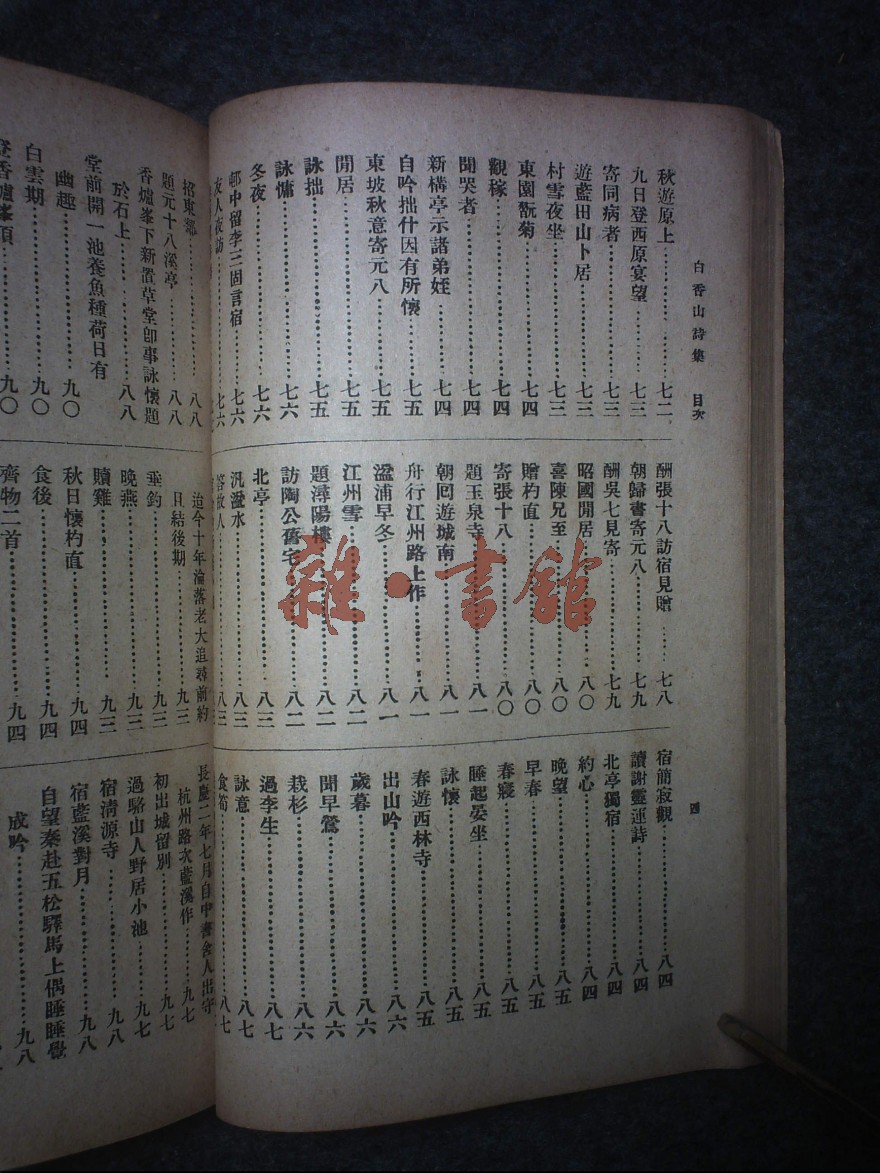 白香山詩集 目次
四
秋遊原上⋯⋯七二
九日登西原宴望⋯⋯七三
寄同病者⋯⋯七三
遊藍田山卜居⋯⋯七三
村雪夜坐⋯⋯七三
東園翫菊⋯⋯七四
觀稼⋯⋯七四
聞哭者⋯⋯七四
新構亭示諸弟姪⋯⋯七四
自吟拙什因有所懷⋯⋯七五
東坡秋意寄元八⋯⋯七五
閒居⋯⋯七五
詠拙⋯⋯七五
詠慵⋯⋯七六
冬夜⋯⋯七六
邨中留李三固言宿⋯⋯七六
友人夜訪⋯⋯七六
酬張十八訪宿見贈⋯⋯七八
朝歸書寄元八⋯⋯七九
酬吳七見寄⋯⋯七九
昭國閒居⋯⋯八〇
喜陳兄至⋯⋯八〇
贈杓直⋯⋯八〇
寄張十八⋯⋯八〇
題玉泉寺⋯⋯八一
朝回遊城南⋯⋯八一
舟行江州路上作⋯⋯八一
湓浦早冬⋯⋯八一
江州雪⋯⋯八二
題潯陽樓⋯⋯八二
訪陶公舊宅⋯⋯八二
北亭⋯⋯八三
汎湓水⋯⋯八三
答故人⋯⋯八三
宿簡寂觀⋯⋯八四
讀謝靈運詩⋯⋯八四
北亭獨宿⋯⋯八四
約心⋯⋯八四
晚望⋯⋯八五
早春⋯⋯八五
春寢⋯⋯八五
睡起晏坐⋯⋯八五
詠懷⋯⋯八五
春遊西林寺⋯⋯八五
出山吟⋯⋯八六
歲暮⋯⋯八六
聞早鶯⋯⋯八六
栽杉⋯⋯八六
過李生⋯⋯八七
詠意⋯⋯八七
食筍⋯⋯八七
招東鄰⋯⋯八八
題元十八溪亭⋯⋯八八
香爐峯下新置草堂卽事詠懷題
於石上⋯⋯八八
堂前開一池養魚種荷日有
幽趣⋯⋯九〇
白雲期⋯⋯九〇
登香爐峯頂⋯⋯九〇
迨今十年淪落老大追尋前約
且結後期⋯⋯九三
垂釣⋯⋯九三
晚燕⋯⋯九三
贖雞⋯⋯九三
秋日懷杓直⋯⋯九四
食後⋯⋯九四
齊物二首⋯⋯九四
長慶二年七月自中書舍人出守
杭州路次藍溪作⋯⋯九七
初出城留別⋯⋯九七
過駱山人野居小池⋯⋯九七
宿清源寺⋯⋯九八
宿藍溪對月⋯⋯九八
自望秦赴五松驛馬上偶睡睡覺
成吟⋯⋯九八
雜·書館